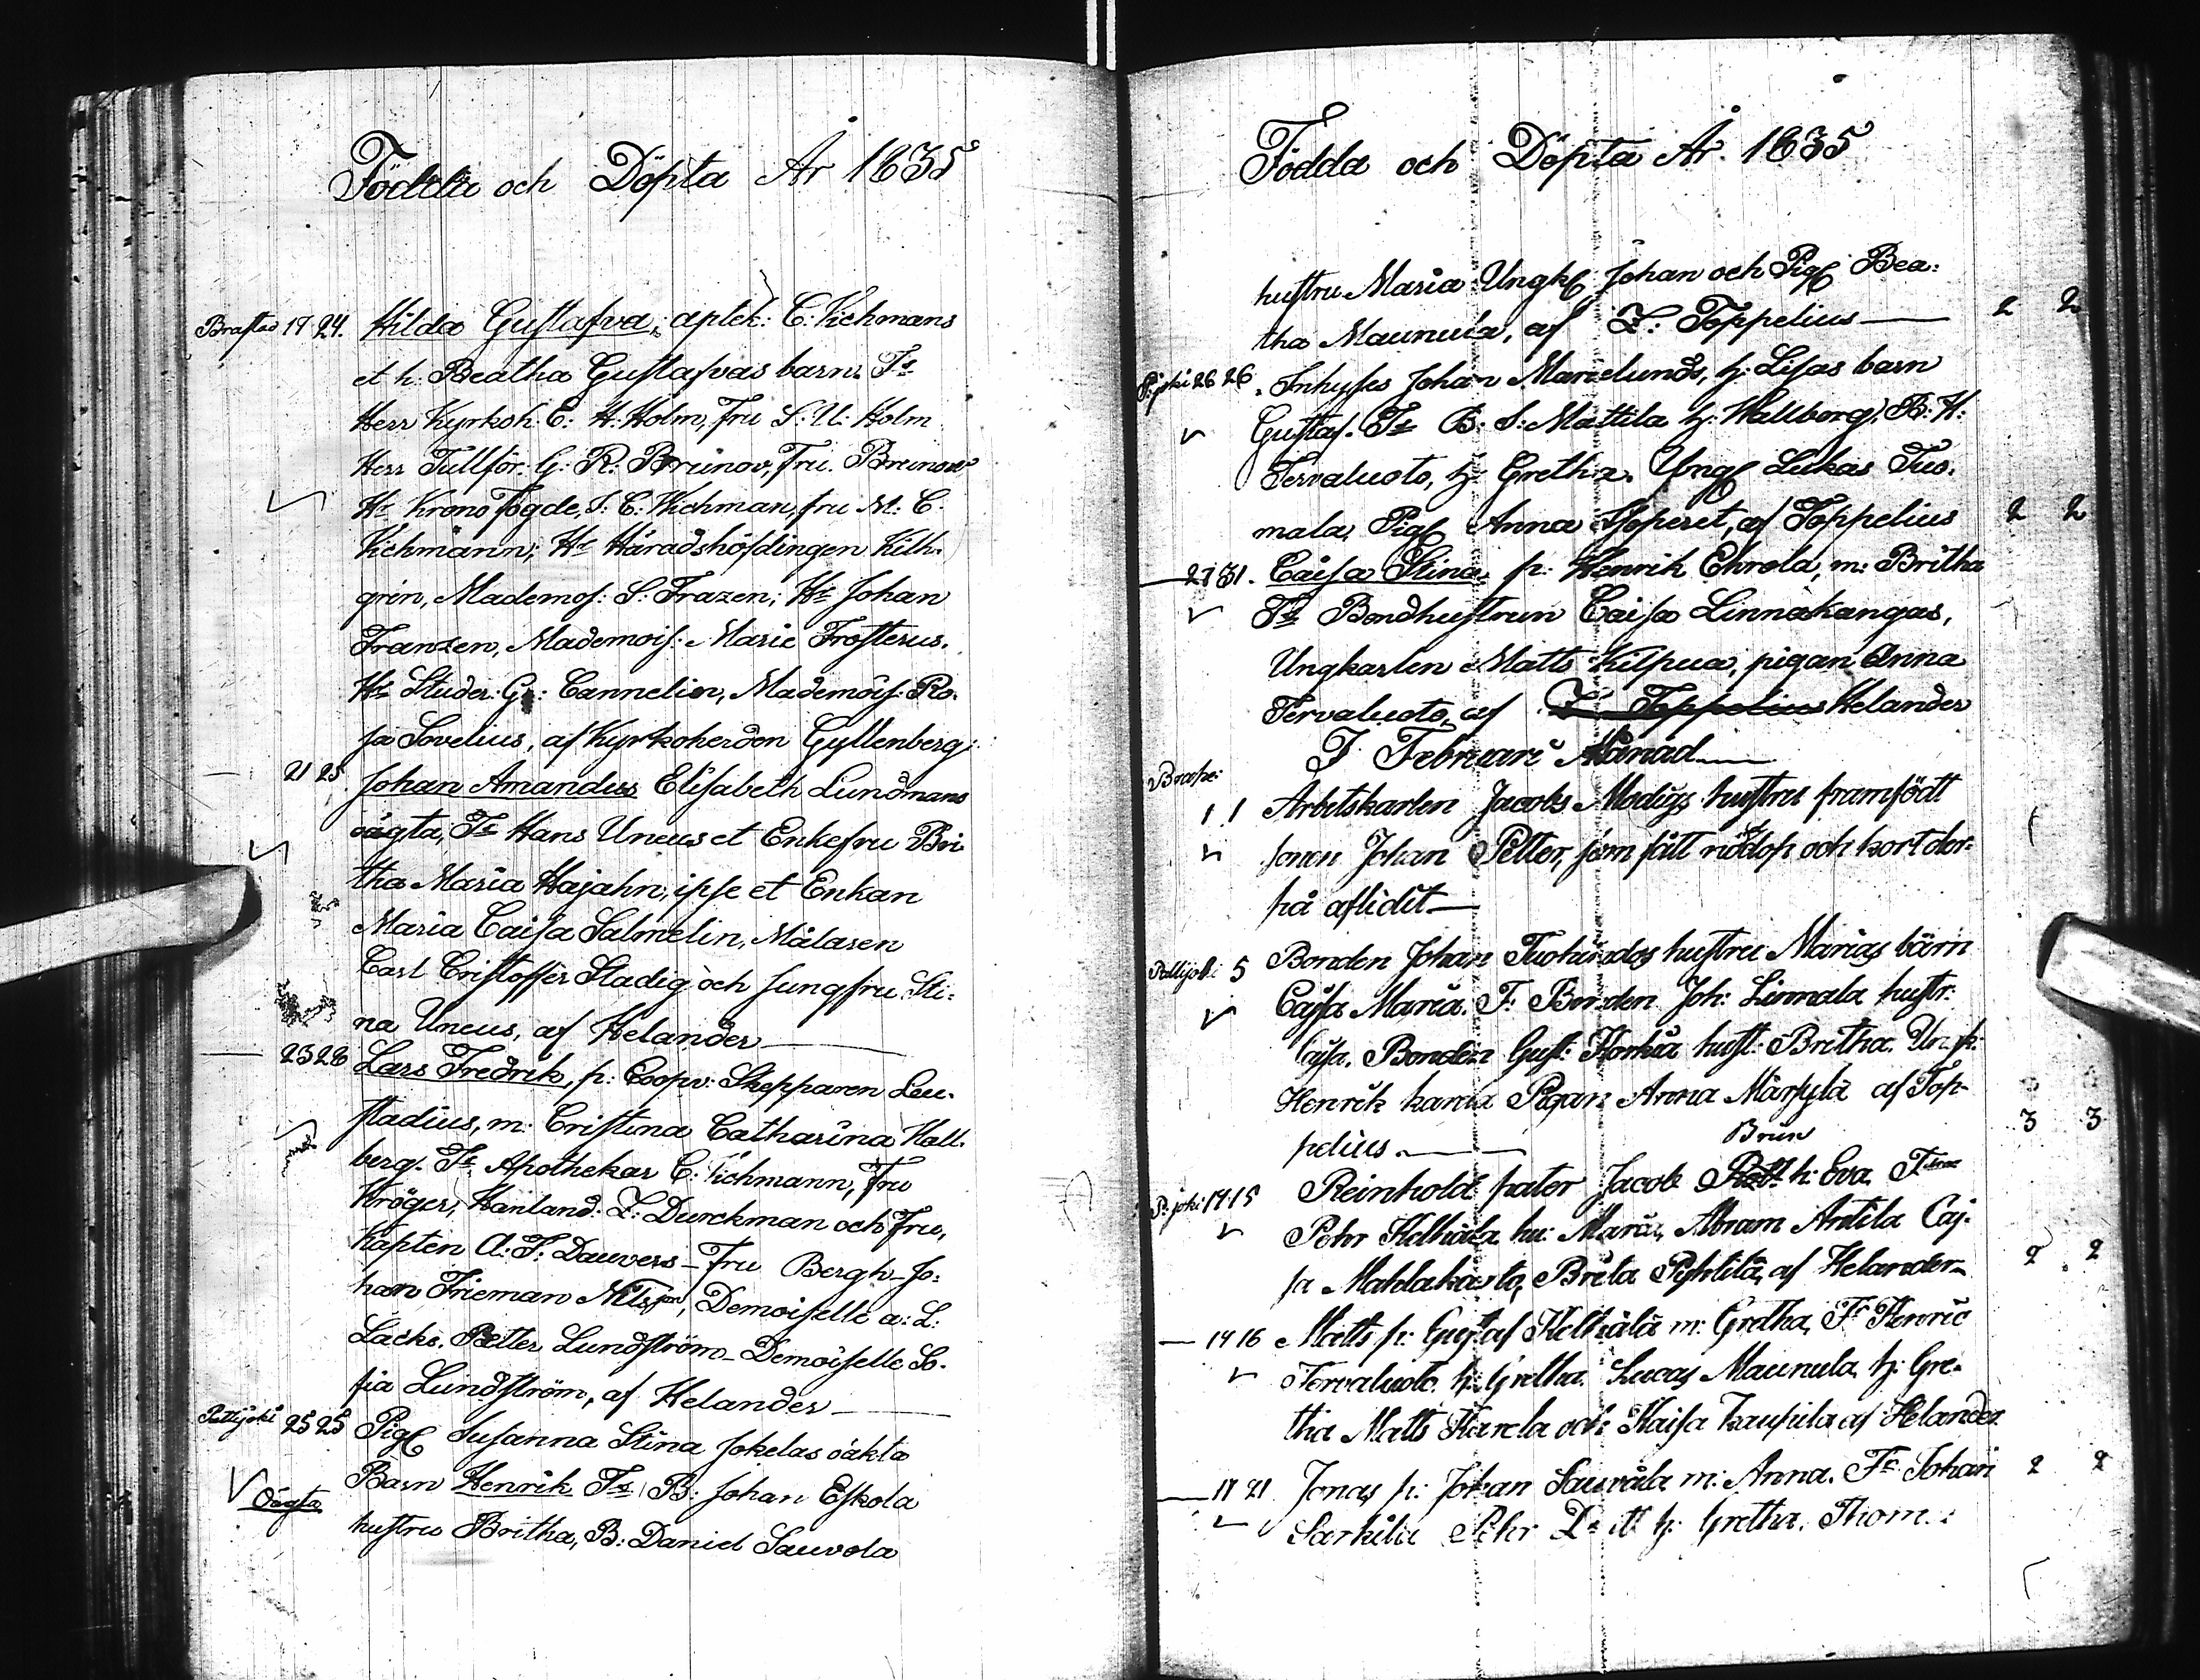 Födda och Döpta År 1835
Brastad 19 24. Hilda Gustafva, aptek: C. Vichmans
et h: Beatha Gustafvas barn. Ts
Herr Kyrkoh. E: H: Holm, Fru S: U: Holm
Herr Tullför. G: R: Brunov, Fru. Brunow
Hr Krono Fogde, I: C: Wichman, fru M: C.
Vichmann; Hr Häradshöfdingen Kilh-
grin, Mademos: S: Frazen; Hr Johan
Franzen, Mademois: Marie Frosterus.
Hr Studer: G: Cannelin, Mademois: Ro-
sa Sovelius, af Kyrkoherden Gyllenberg:
21 25 Johan Amandus Elisabeth Lundmans
oägta, Ts Hans Uneus et Enkefru Bri
tha Maria Hajahn, ipse et Enkan
Maria Caisa Salmelin, Målaren
Carl Cristoffer Stadig och Jungfru Sti:
na Uneus, af Helander
23 28 Lars Fredrik, p: Coopv: Skepparen Leu-
stadius, m: Cristina Catharina Hall-
berg. Ts Apothekar C: Vichmann, Fru
Kröger, Hanland: Z: Durckman och Fru,
Kapten A: F: Dauvers - Fru Bergh - Jo:
han Frieman Nilsson, Demoiselle a: L:
Lacks. Petter Lundström - Demoiselle So-
fia Lundström, af Helander
Pattijoki 25 25 Pig Susanna Stina Jokelas oäkta
Barn Henrik Ts B: Johan Eskola
Oägta
hustru Britha, B: Daniel Sauvola
Födda och Döpta År. 1835
hustru Maria Ungk Johan och Pig Bea:
tha Maunula, af Z: Toppelius 2 2
P: joki 26 26. Inhyses Johan Marielunds, h: Lisas barn
Gustaf. Ts B: S: Mattila h: Wallborg, B: H:
Tervaluoto, h: Gretha. Ung Lukas Tuo-
mala, Pig Anna Soperet, af Toppelius 2 2
27 31. Caisa Stina p: Henrik Ehrola, m: Britha
Ts Bondhustrun Caisa Linnakangas,
Ungkarlen Matts Kilpua, pigan Anna
Tervaluoto, af Z Toppelius Helander
I Februari Månad
Brahe:
1 1 Arbetskarlen Jacobs Modigs hustru framfödt
sonen Johan Petter, som fått nöddop och kort der-
på aflidit
Pattijoki 5 Bonden Johan Tuohinos hustru Marias barn
Cajsa Maria. F: Bonden Joh: Linnala hustr:
Cajsa. Bonden Gust: Korkia hust: Britha. Ungk:
Henrik Pigan Anna Märsylä af Top-
pelius 3 3
Brun
P: joki 14 15 Reinhold pater Jacob h: Eva, F
Pehr Kelhälä hu: Maria, Abram Antila Caj-
sa Mahlakaarto, Breta Pyhtilä, af Helander 2 2
14 16 Matts p: Gustaf Kelhälä m: Gretha, Fr Henric
Tervaluoto h: Gretha. Lucas Maunula h: Gre-
tha Matts Karela och Kaisa Kaupila af Helander
17 21 Jonas p: Johan Sauvala m: Anna. Fr Johan 2 2
Sarkila Pehr h: Gretha. Thom: